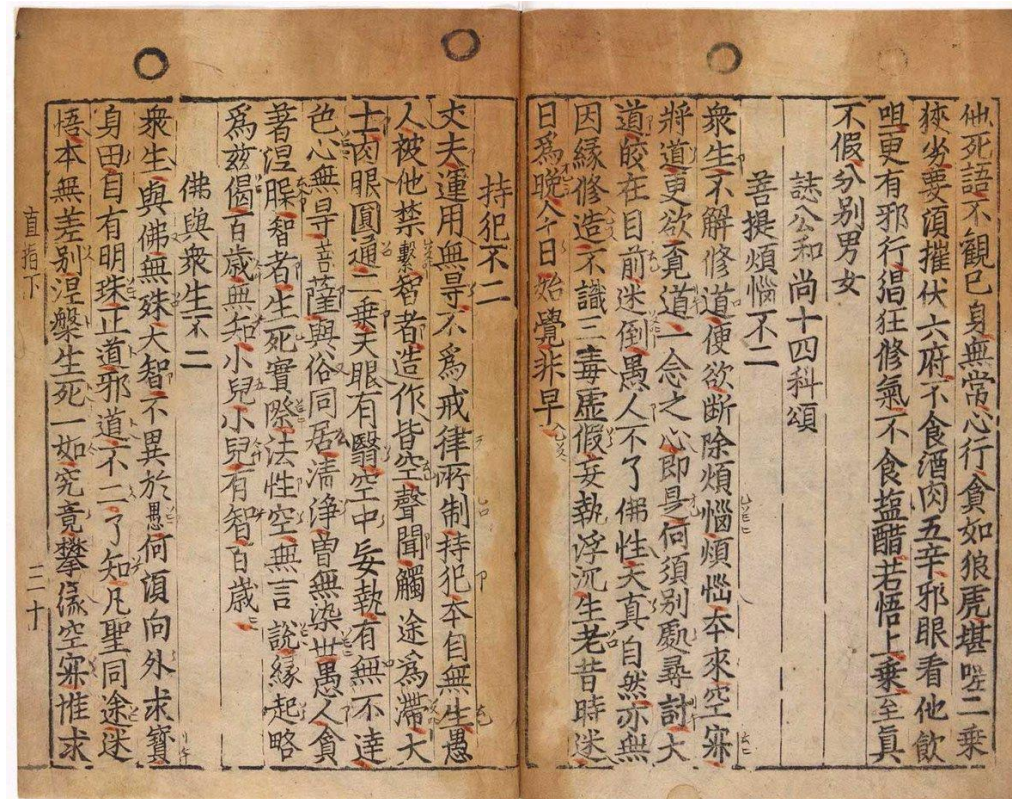 他死語不觀己身無常心行貪如狼虎堪嗟二乘
狹劣要須摧伏六府不食酒肉五辛邪眼看他飲
咀更有邪行猖狂修氣不食盐醋若悟上乗至真
不假分別男女
誌公和尚十四科頌
菩提煩惱不二
衆生不解修道便欲断除煩惱煩惱本來空寂
將道更欲覓道一念之心即是何須別處尋討大
道皎在目前迷倒愚人不了佛性天真自然亦無
因緣修造不識三毒虛假妄執浮沉生老昔時迷
日爲晚今日始覺非早
持犯不二
丈夫運用無㝵不爲戒律所制持犯本自無生愚
人被他禁繫智者造作皆空聲聞觸途爲滯大
士肉眼圓通二乗天眼有翳空中妄執有無不達
色心無㝵菩薩與俗同居清淨曽無染世愚人貪
著涅槃智者生死實際法性空無言說緣起略
爲兹偈百歲無知小兒小兒有智百歲
佛與衆生不二
衆生與佛無殊大智不異於愚何須向外求寳
身田自有明珠正道邪道不二了知凡聖同途迷
悟本無差別涅槃生死一如究竟攀縁空寂惟求
直指下 三十